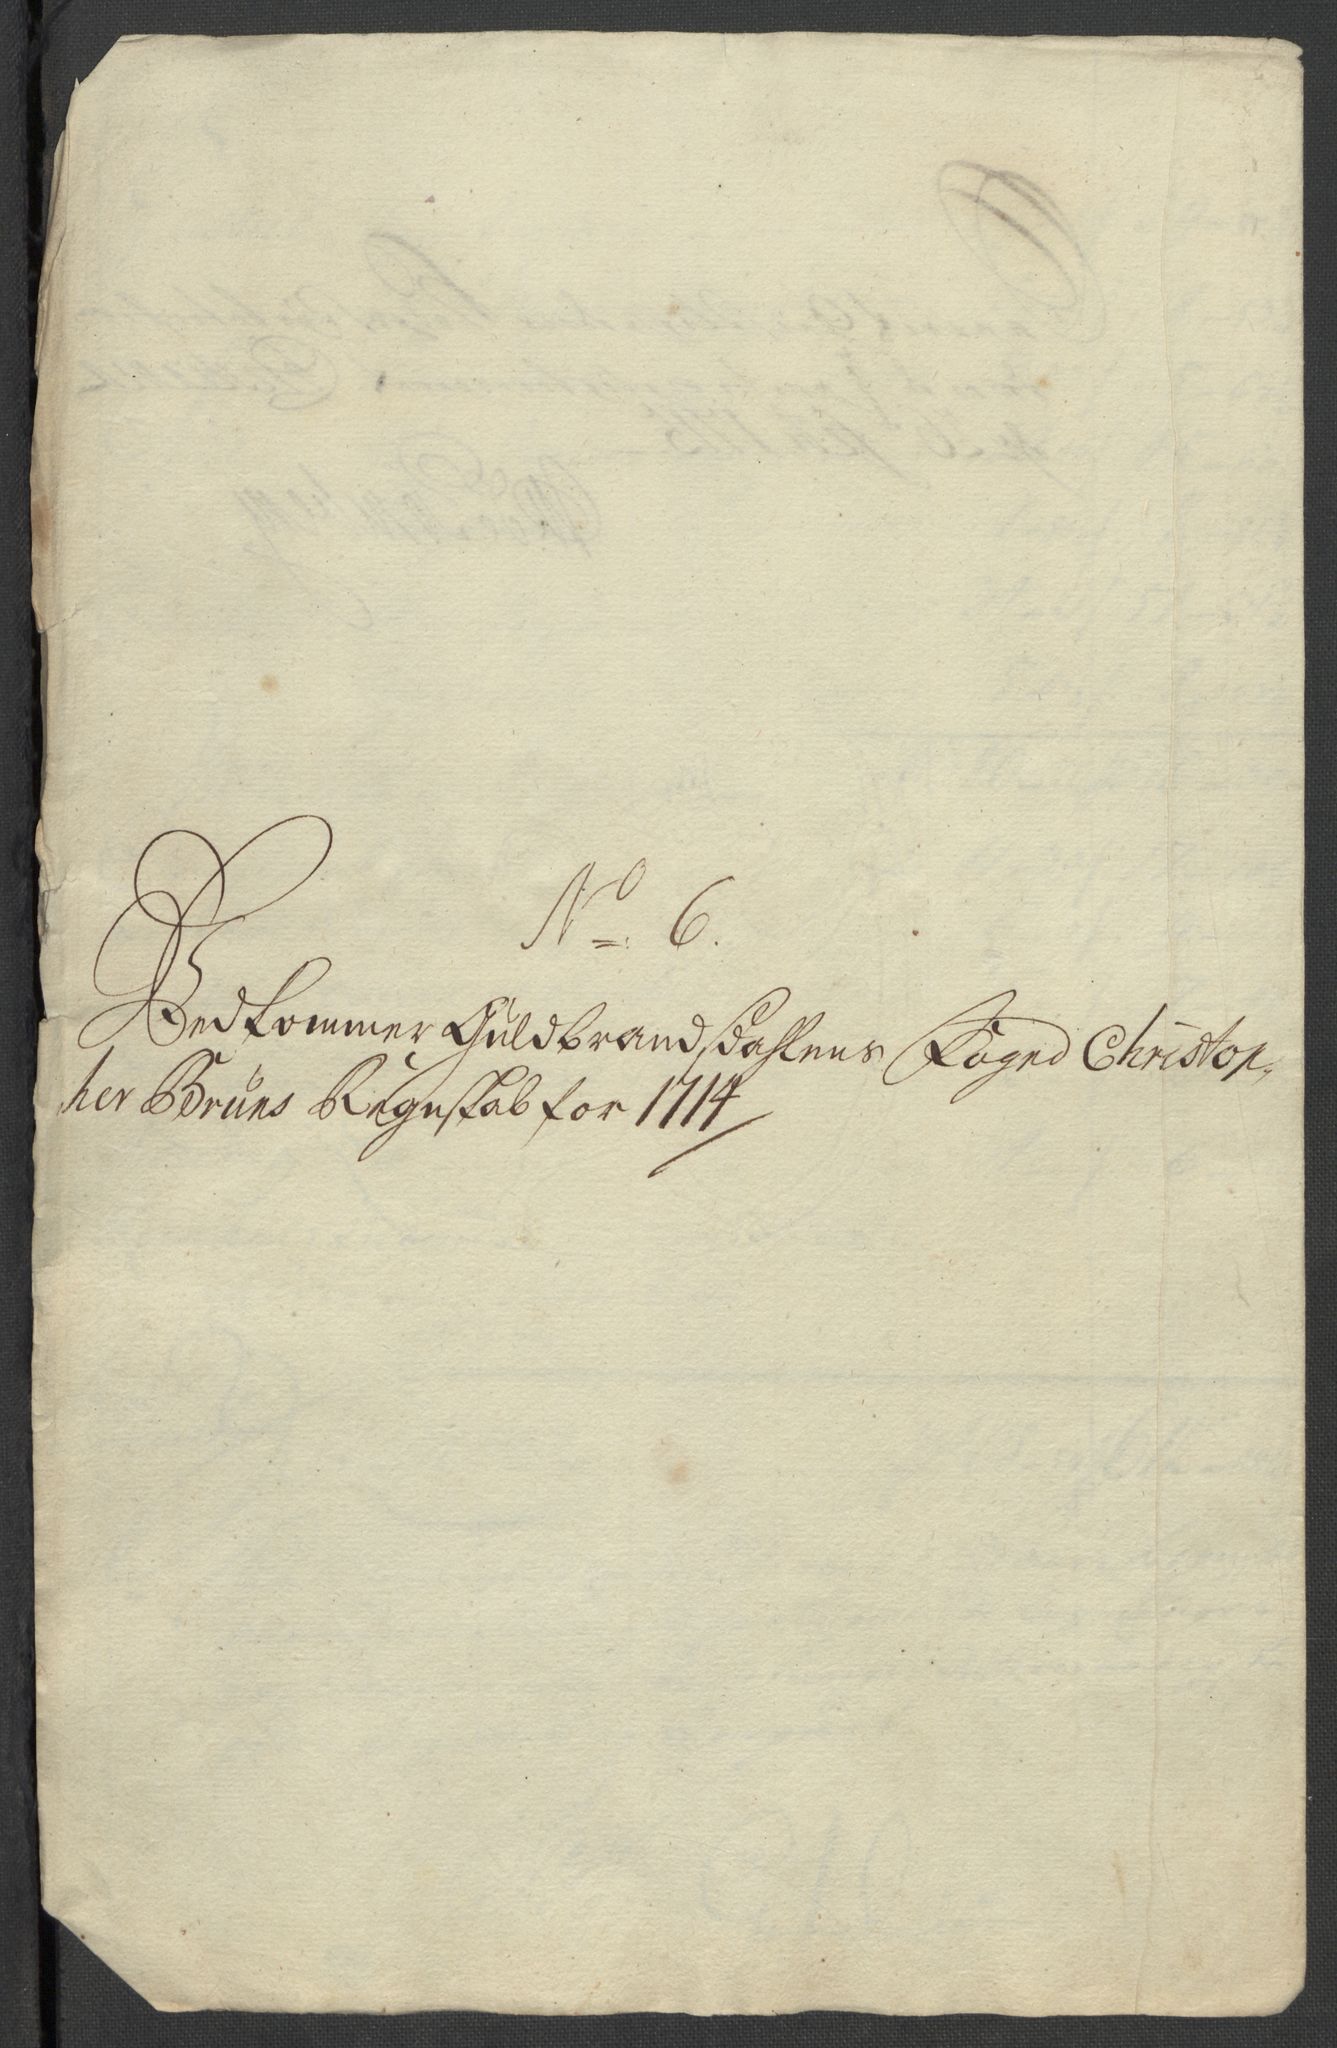 No 6.
Vedkommer Guldbrandsdahlens Foged Christop-
her Bruns Regnskab for 1714